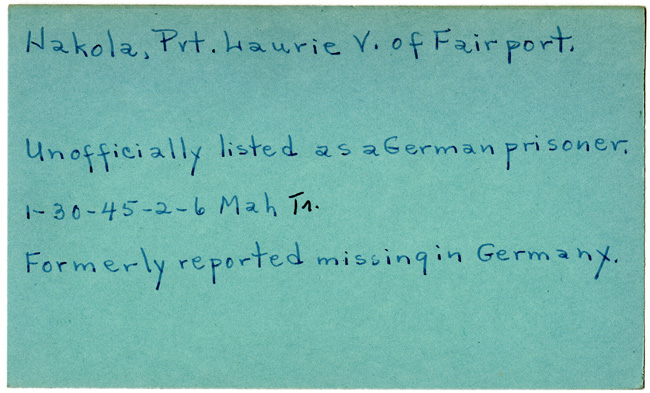 Nakola, Pvt. Laurie V. of Fairport.
Unofficially listed as a German prisoner.
1-30-45-2-6 Mah Tr.
Formerly reported missing in Germany.